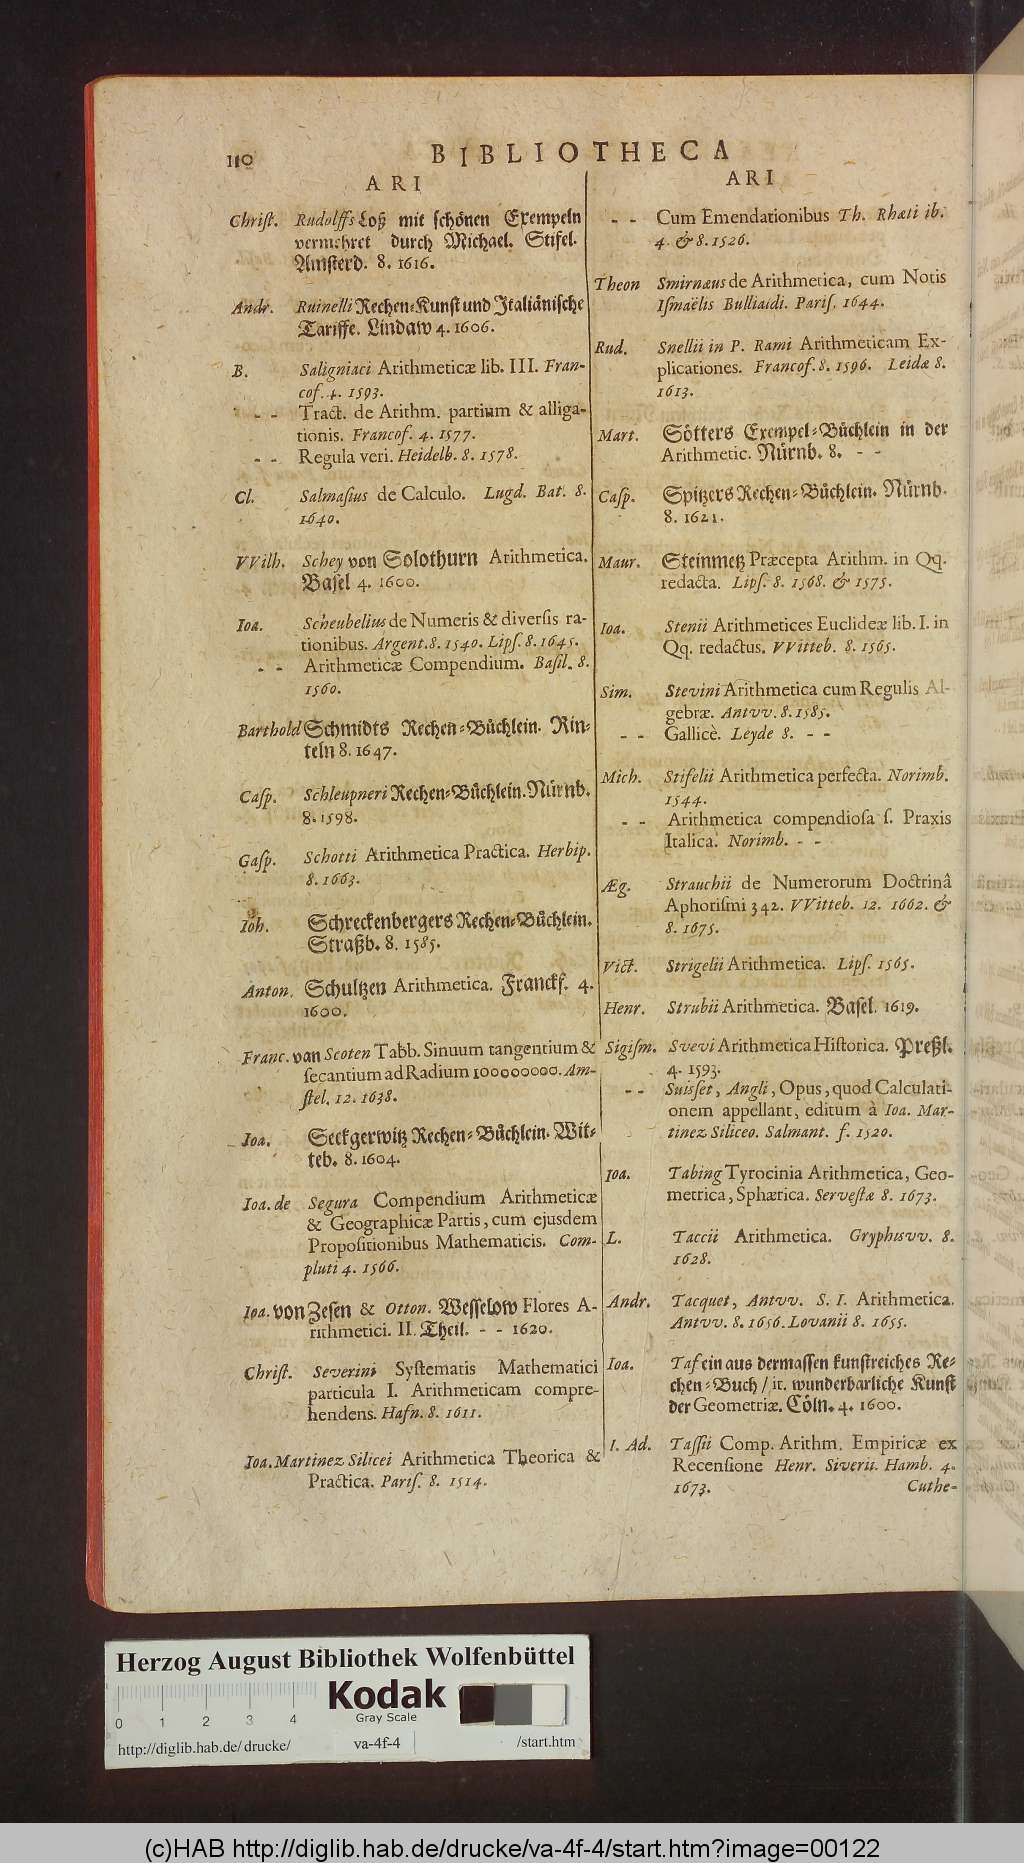 110
BIBLIOTHECA
ARI
Christ. Rudolffs Coß mit schönen Exempeln
vermehret durch Michael. Stifel.
Amsterd. 8. 1616.
Andr. Ruinelli Rechen-Kunst und Italiänische
Tariffe. Lindaw 4. 1606.
B. Saligniaci Arithmeticæ lib. III. Fran-
cof. 4. 1593.
- - Tract. de Arithm. partium & alliga-
tionis. Francof. 4. 1577.
- - Regula veri. Heidelb. 8. 1578.
Cl. Salmasius de Calculo. Lugd. Bat. 8.
1640.
VVilh. Schey von Solothurn Arithmetica.
Basel 4. 1600.
Ioa. Scheubelius de Numeris & diversis ra-
tionibus. Argent. 8. 1540. Lips. 8. 1645.
- - Arithmeticæ Compendium. Basil. 8.
1560.
Barthold Schmidts Rechen-Büchlein. Rin-
teln 8. 1647.
Casp. Schleupneri Rechen-Büchlein. Nürnb.
8. 1598.
Gasp. Schotti Arithmetica Practica. Herbip.
8. 1663.
Joh. Schreckenbergers Rechen-Büchlein.
Straßb. 8. 1585.
Anton. Schultzen Arithmetica. Franckf. 4.
1600.
Franc. van Scoten Tabb. Sinuum tangentium &
secantium ad Radium 100000000. Am-
stel. 12. 1638.
Ioa. Seckgerwitz Rechen-Büchlein. Wit-
teb. 8. 1604.
Ioa. de Segura Compendium Arithmeticæ
& Geographicæ Partis, cum ejusdem
Propositionibus Mathematicis. Com-
pluti 4. 1566.
Ioa. von Zesen & Otton. Wesselow Flores A-
rithmetici. II. Theil. - - 1620.
Christ. Severini Systematis Mathematici
particula I. Arithmeticam compre-
hendens. Hafn. 8. 1611.
Ioa. Martinez Silicei Arithmetica Theorica &
Practica. Paris. 8. 1514.
ARI
- - Cum Emendationibus Th. Rhæti ib.
4. & 8. 1526.
Theon Smirnæus de Arithmetica, cum Notis
Ismaëlis Bullialdi. Paris. 1644.
Rud. Snellii in P. Rami Arithmeticam Ex-
plicationes. Francof. 8. 1596. Leidæ 8.
1613.
Mart. Sötters Exempel-Büchlein in der
Arithmetic. Nürnb. 8. - -
Casp. Spitzers Rechen-Büchlein. Nürnb.
8. 1621.
Maur. Steinmetz Præcepta Arithm. in Qq.
redacta. Lips. 8. 1568. & 1575.
Ioa. Stenii Arithmetices Euclideæ lib. I. in
Qq. redactus. VVitteb. 8. 1565.
Sim. Stevini Arithmetica cum Regulis Al-
gebræ. Antvv. 8. 1585.
- - Gallicè. Leyde 8. - -
Mich. Stifelii Arithmetica perfecta. Norimb.
1544.
- - Arithmetica compendiosa s. Praxis
Italica. Norimb. - -
Æg. Strauchii de Numerorum Doctrinâ
Aphorismi 342. VVitteb. 12. 1662. &
8. 1675.
Vict. Strigelii Arithmetica. Lips. 1565.
Henr. Strubii Arithmetica. Basel. 1619.
Sigism. Svevi Arithmetica Historica. Preßl.
4. 1593.
- - Suisset, Angli, Opus, quod Calculati-
onem appellant, editum à Ioa. Mar-
tinez Siliceo. Salmant. f. 1520.
Ioa. Tabing Tyrocinia Arithmetica, Geo-
metrica, Sphærica. Servestæ 8. 1673.
L. Taccii Arithmetica. Gryphisvv. 8.
1628.
Andr. Tacquet, Antvv. S. I. Arithmetica.
Antvv. 8. 1656. Lovanii 8. 1655.
Ioa. Taf ein aus dermassen kunstreiches Re-
chen-Buch / it. wunderbarliche Kunst
der Geometriæ. Cöln. 4. 1600.
I. Ad. Tassii Comp. Arithm. Empiricæ ex
Recensione Henr. Siverii. Hamb. 4.
1673.
Cuthe-
Herzog August Bibliothek Wolfenbüttel
Kodak
Gray Scale
0 1 2 3 4
http://diglib.hab.de/drucke/ va-4f-4 /start.htm
(c)HAB http://diglib.hab.de/drucke/va-4f-4/start.htm?image=00122